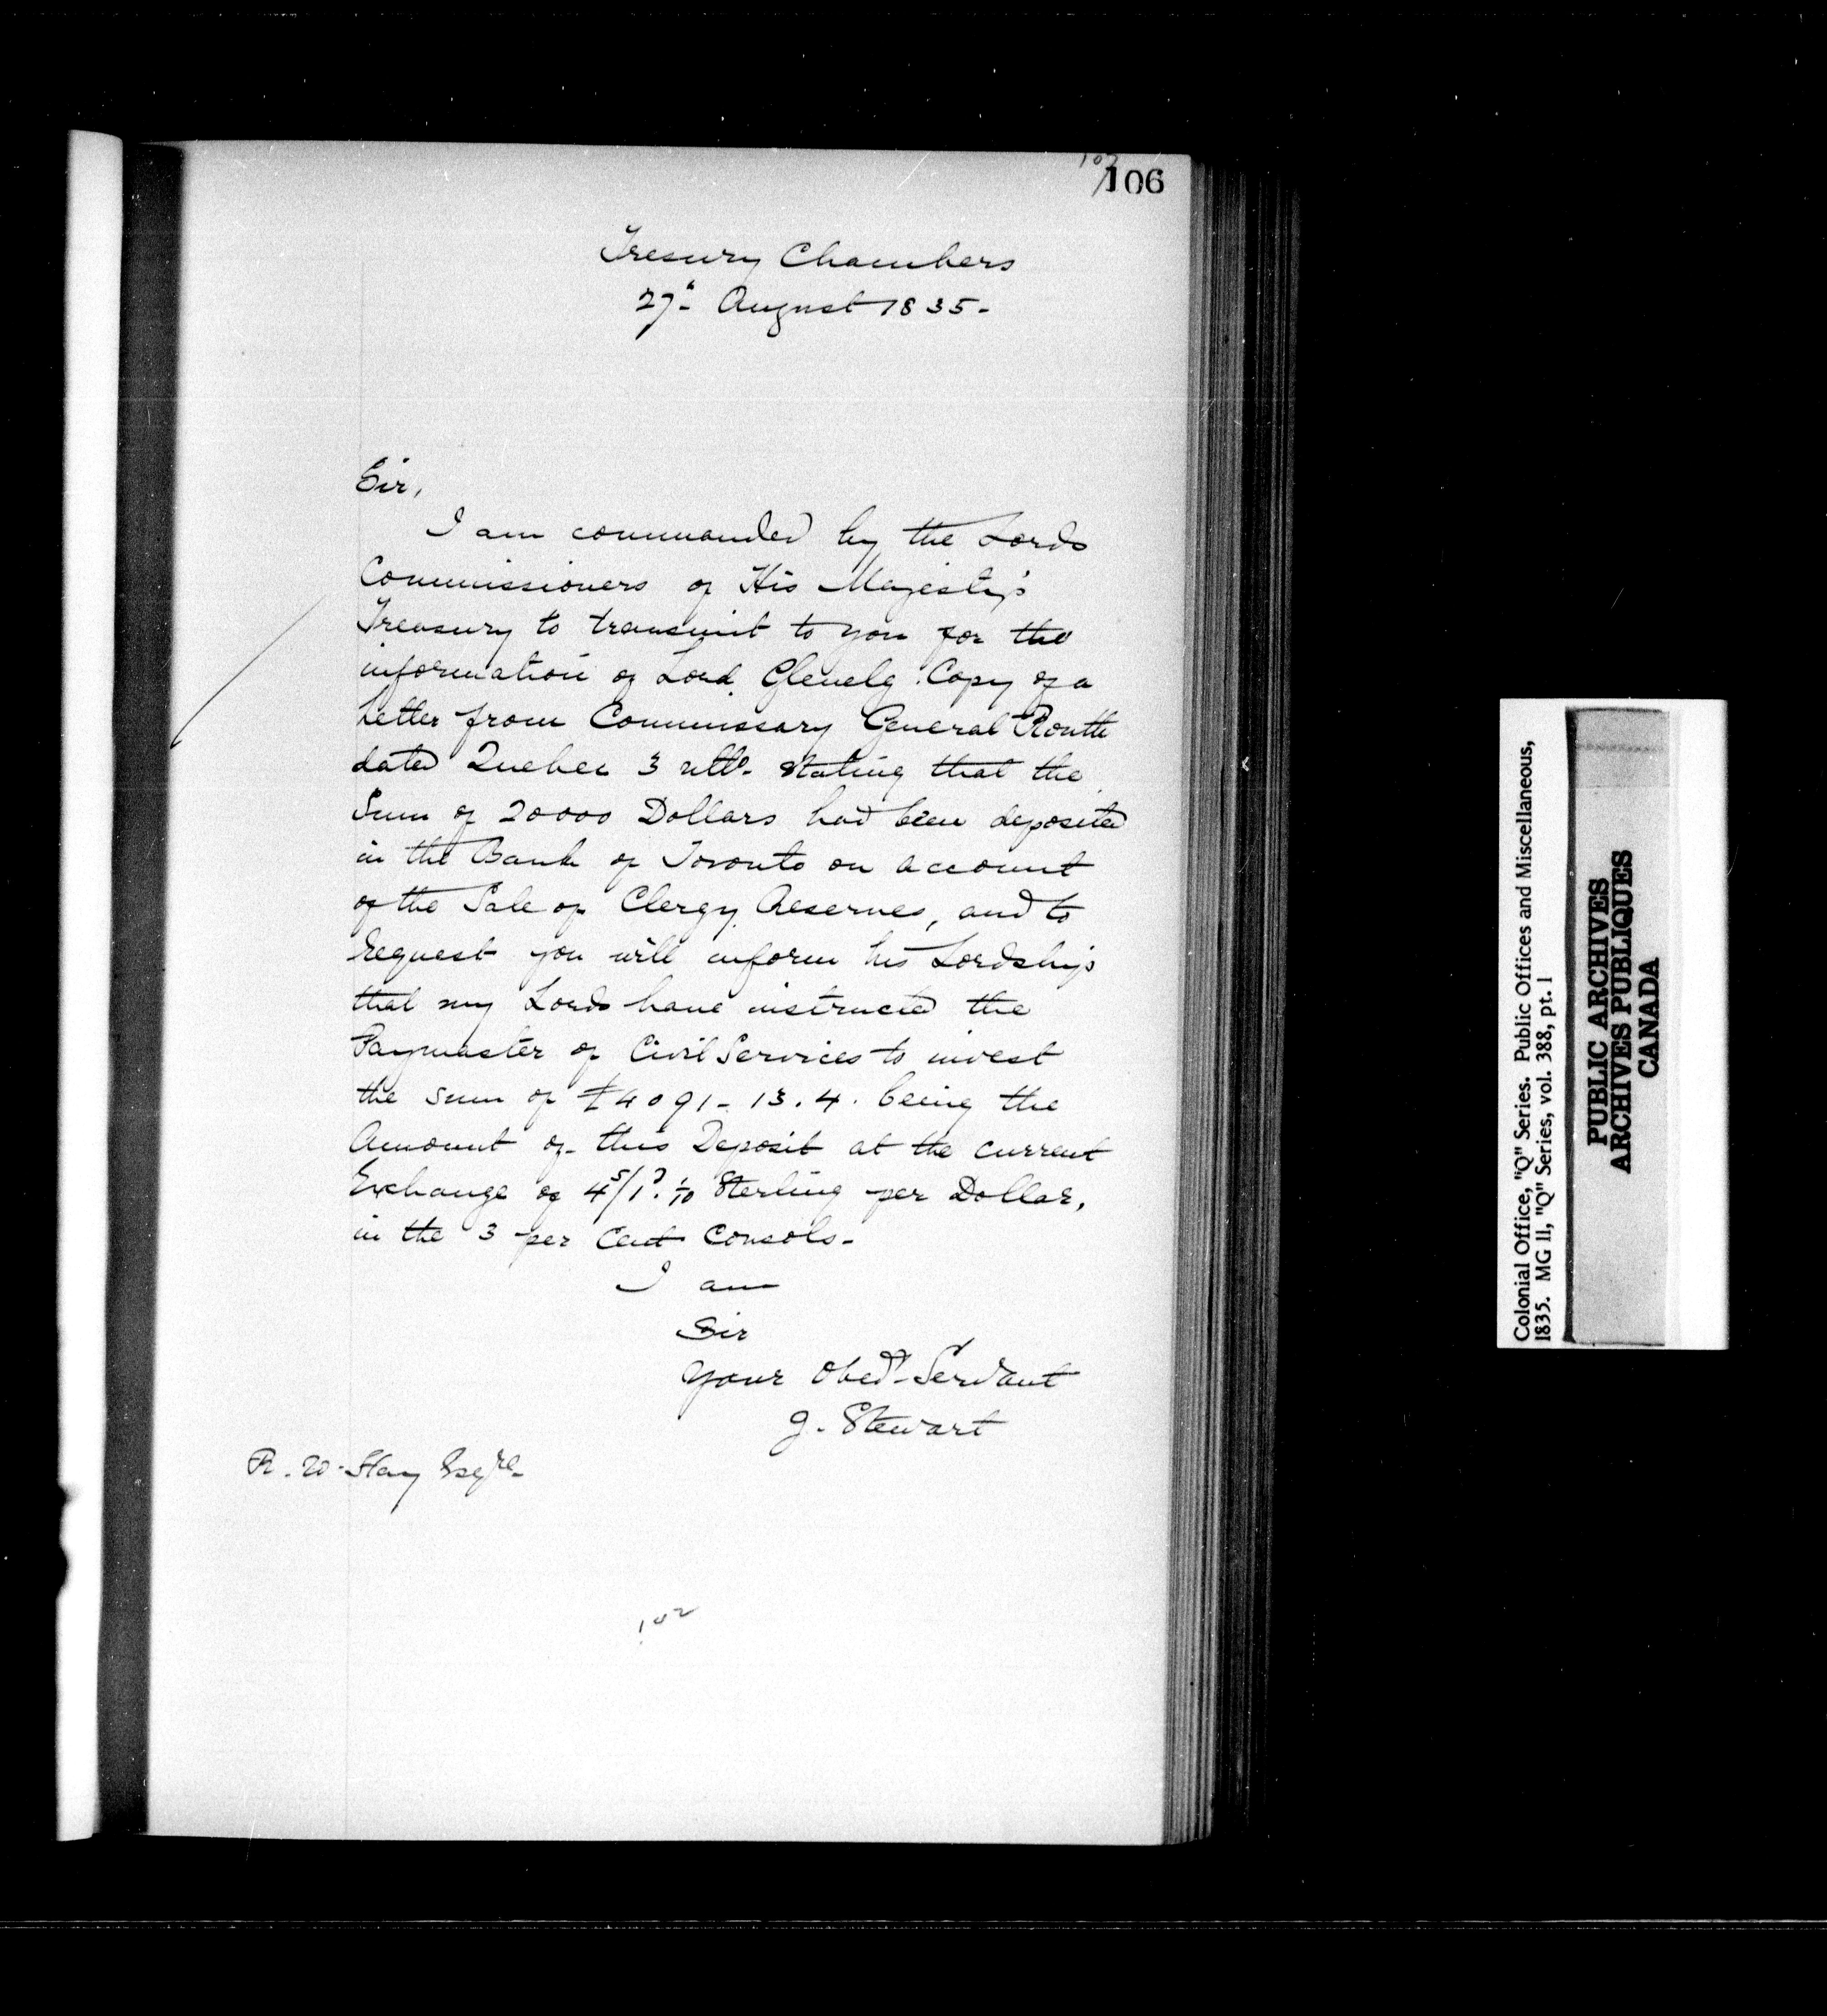 106
Tresury Chambers
27th August 1835-
Sir,
I am commanded by the Lords
Commissioners of His Majesty's
Treasury to transmit to you for the
information of Lord Glenelg Copy of a
Letter from Commissary General Routh
dated Quebec 3 ulto. stating that the
Sum of 20000 Dollars had been deposited
in the Bank of Toronto on account
of the Sale of Clergy Reserves, and to
request you will inform his Lordship
that my Lords have instructed the
Paymaster of Civil Services to invest
the sum of £4091-13.4. being the
Amount of this Deposit at the current
Exchange of 4s/1d. 1/10 Sterling per Dollar,
in the 3 per Cent Consols-
I am
Sir
Your Obedt Servant
J. Stewart
R. W. Hay Esqre
102
Colonial Office, "Q" Series. Public Offices and Miscellaneous,
1835. MG 11, "Q" Series, vol. 388, pt. 1
PUBLIC ARCHIVES
ARCHIVES PUBLIQUES
CANADA